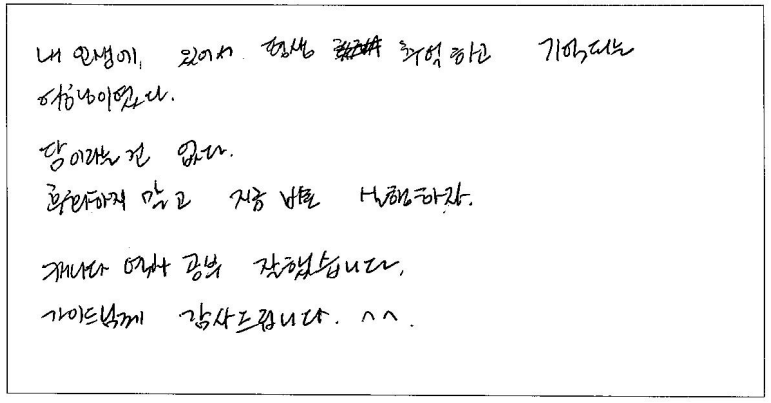 내 인생에, 있어서 평생 추억하고 기억되는
여행이였다.
답이라는 건 없다.
후회하지 말고 지금 바로 실행하자.
캐나다 역사 공부 잘했습니다.
가이드님께 감사드립니다. ^^.